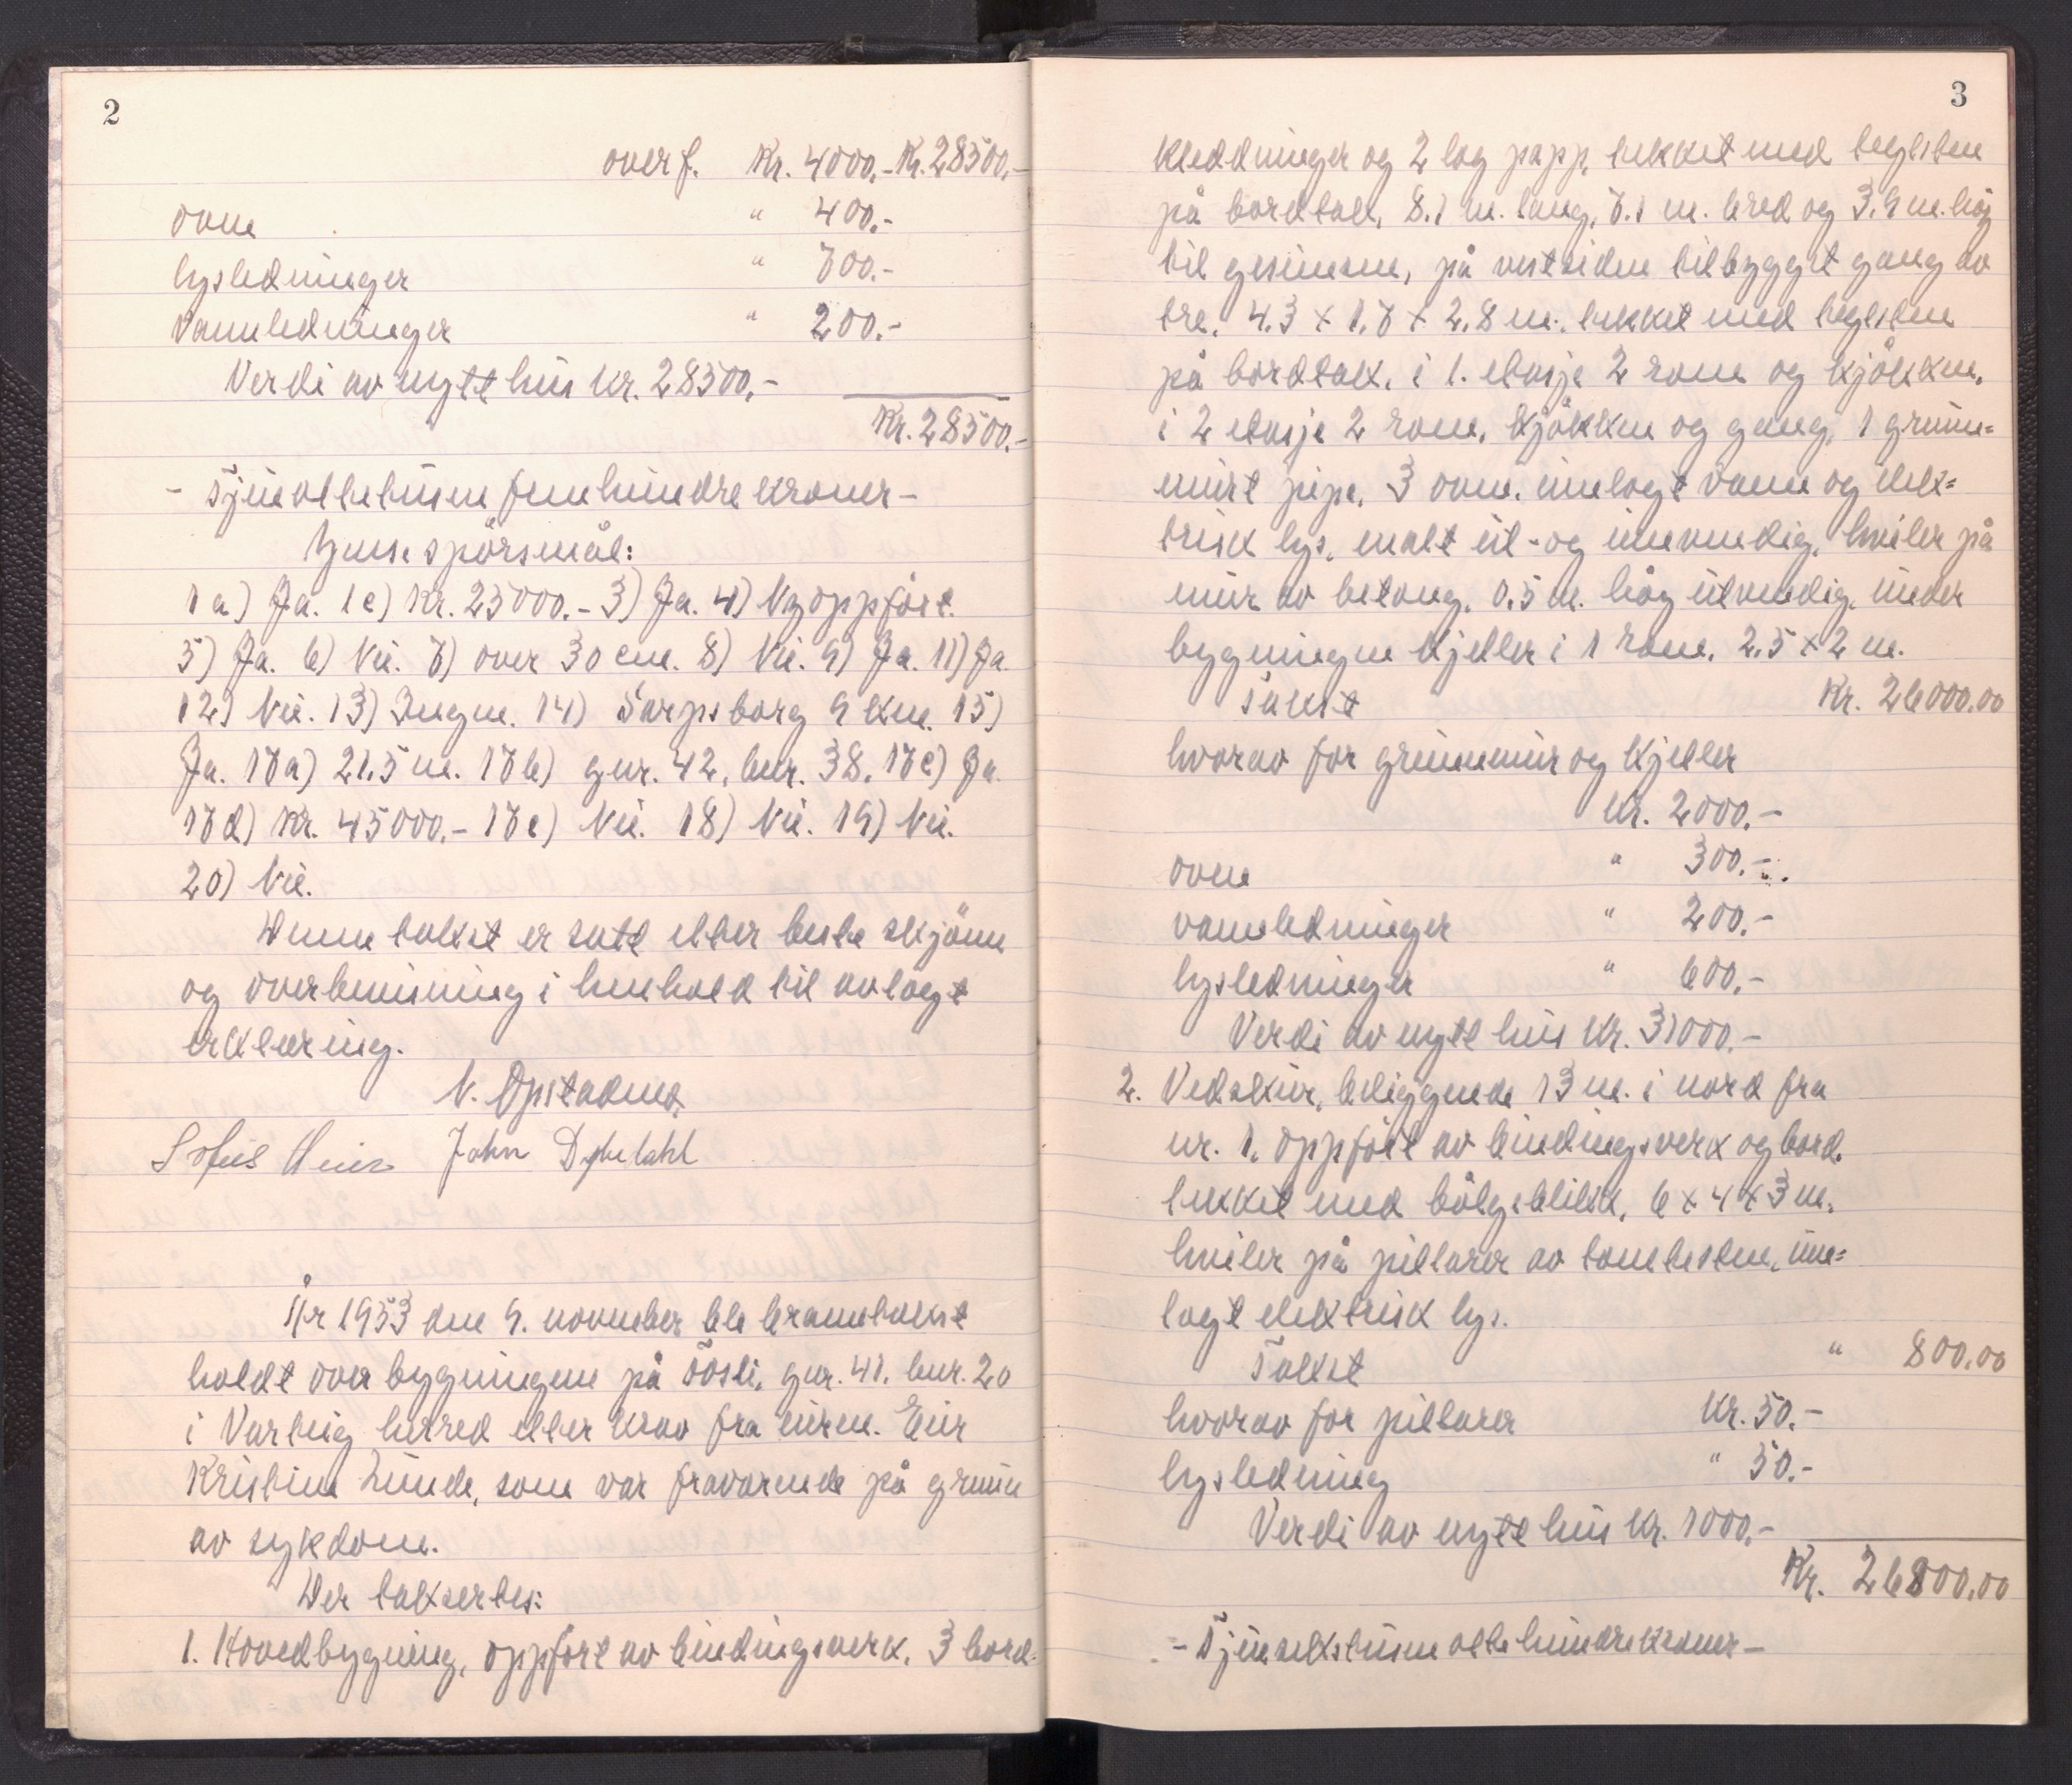 2
overf. Kr. 4000.- Kr. 28500.-
ovne " 400.-
lysledninger " 700.-
vannledninger " 200.-
Verdi av nytt hus kr. 28500.-
Kr. 28500.-
- Tjueåttetusen femhundre kroner -
Hjmse spörsmål:
1a) Ja. 1c) Kr. 25000.- 3) Ja. 4) Nyoppfört.
5) Ja. 6) Nei. 7) over 30 cm. 8) Nei. 9) Ja. 11) Ja
12) Nei. 13) Ingen. 14) Sarpsborg 9 km. 15)
Ja. 17a) 21,5 m. 17b) gnr. 42, bnr. 38. 17c) Ja.
17d) Kr. 45000.- 17e) Nei. 18) Nei. 19) Nei.
20) Nei.
Denne takst er satt etter beste skjönn
og overbevisning i henhold til avlagt
erklæring.
N. Opstadmo.
John Dybdahl
År 1953 den 9. november ble branntakst
holdt over bygningene på Tösli, gnr. 41. bnr. 20
i Varteig herred etter krav fra eieren. Eier
Kristine Lunde, som var fraværende på grunn
av sykdom.
Der taksertes:
1. Hovedbygning, oppfört av bindingsverk, 3 bord-
3
kledninger og 2 lag papp, tekket med teglsten
på bordtak, 8.1 m. lang, 7.1 m. bred og 3.9 m. höy
til gesimsen, på vestsiden tilbygget gang av
tre, 4.3 x 1,7 x 2,8 m., tekket med teglsten
på bordtak, i 1. etasje 2 rom og kjökken,
i 2 etasje 2 rom, kjökken og gang, 1 grunn=
murt pipe, 3 ovne. innlagt vann og elek=
trisk lys, malt ut- og innvendig, hviler på
mur av betong, 0.5 m. höy utvendig, under
bygningen kjeller i 1 rom, 2.5 x 2 m.
Takst Kr. 26000.00
hvorav for grunnmur og kjeller
Kr. 2000.-
ovne " 300.-
vannledninger " 200.-
lysledninger " 600.-
Verdi av nytt hus kr. 31000.-
2. Vedskur, beliggende 13 m. i nord fra
nr. 1, oppfört av bindingsverk og bord,
tekket med bölgeblikk, 6 x 4 x 3 m.
hviler på pillarer av tomtesten, inn=
lagt elektrisk lys.
Takst " 800.00
hvorav for pillarer Kr. 50.-
lysledning " 50.-
Verdi av nytt hus kr. 1000.-
Kr. 26800.00
- Tjueselstusenåttehundrekroner -